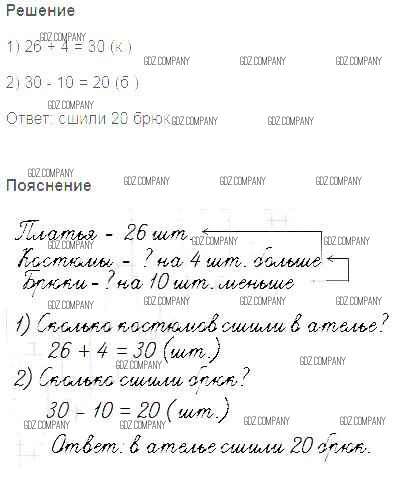 Решение
GDZ.COMPANY
1) 26 + 4 = 30 (к.)
GDZ.COMPANY GDZ.COMPANY GDZ.COMPANY
2) 30 - 10 = 20 (б.)
GDZ.COMPANY
Ответ: сшили 20 брюк.
GDZ.COMPANY GDZ.COMPANY GDZ.COMPANY
GDZ.COMPANY
Пояснение
GDZ.COMPANY GDZ.COMPANY GDZ.COMPANY
Платья - 26 шт.
GDZ.COMPANY GDZ.COMPANY GDZ.COMPANY
Костюмы - ? на 4 шт. больше
Брюки - ? на 10 шт. меньше
GDZ.COMPANY GDZ.COMPANY GDZ.COMPANY GDZ.COMPANY
1) Сколько костюмов сшили в ателье?
26 + 4 = 30 (шт.)
GDZ.COMPANY
GDZ.COMPANY
2) Сколько сшили брюк?
30 - 10 = 20 (шт.)
GDZ.COMPANY GDZ.COMPANY GDZ.COMPANY GDZ.COMPANY
Ответ: в ателье сшили 20 брюк.
GDZ.COMPANY